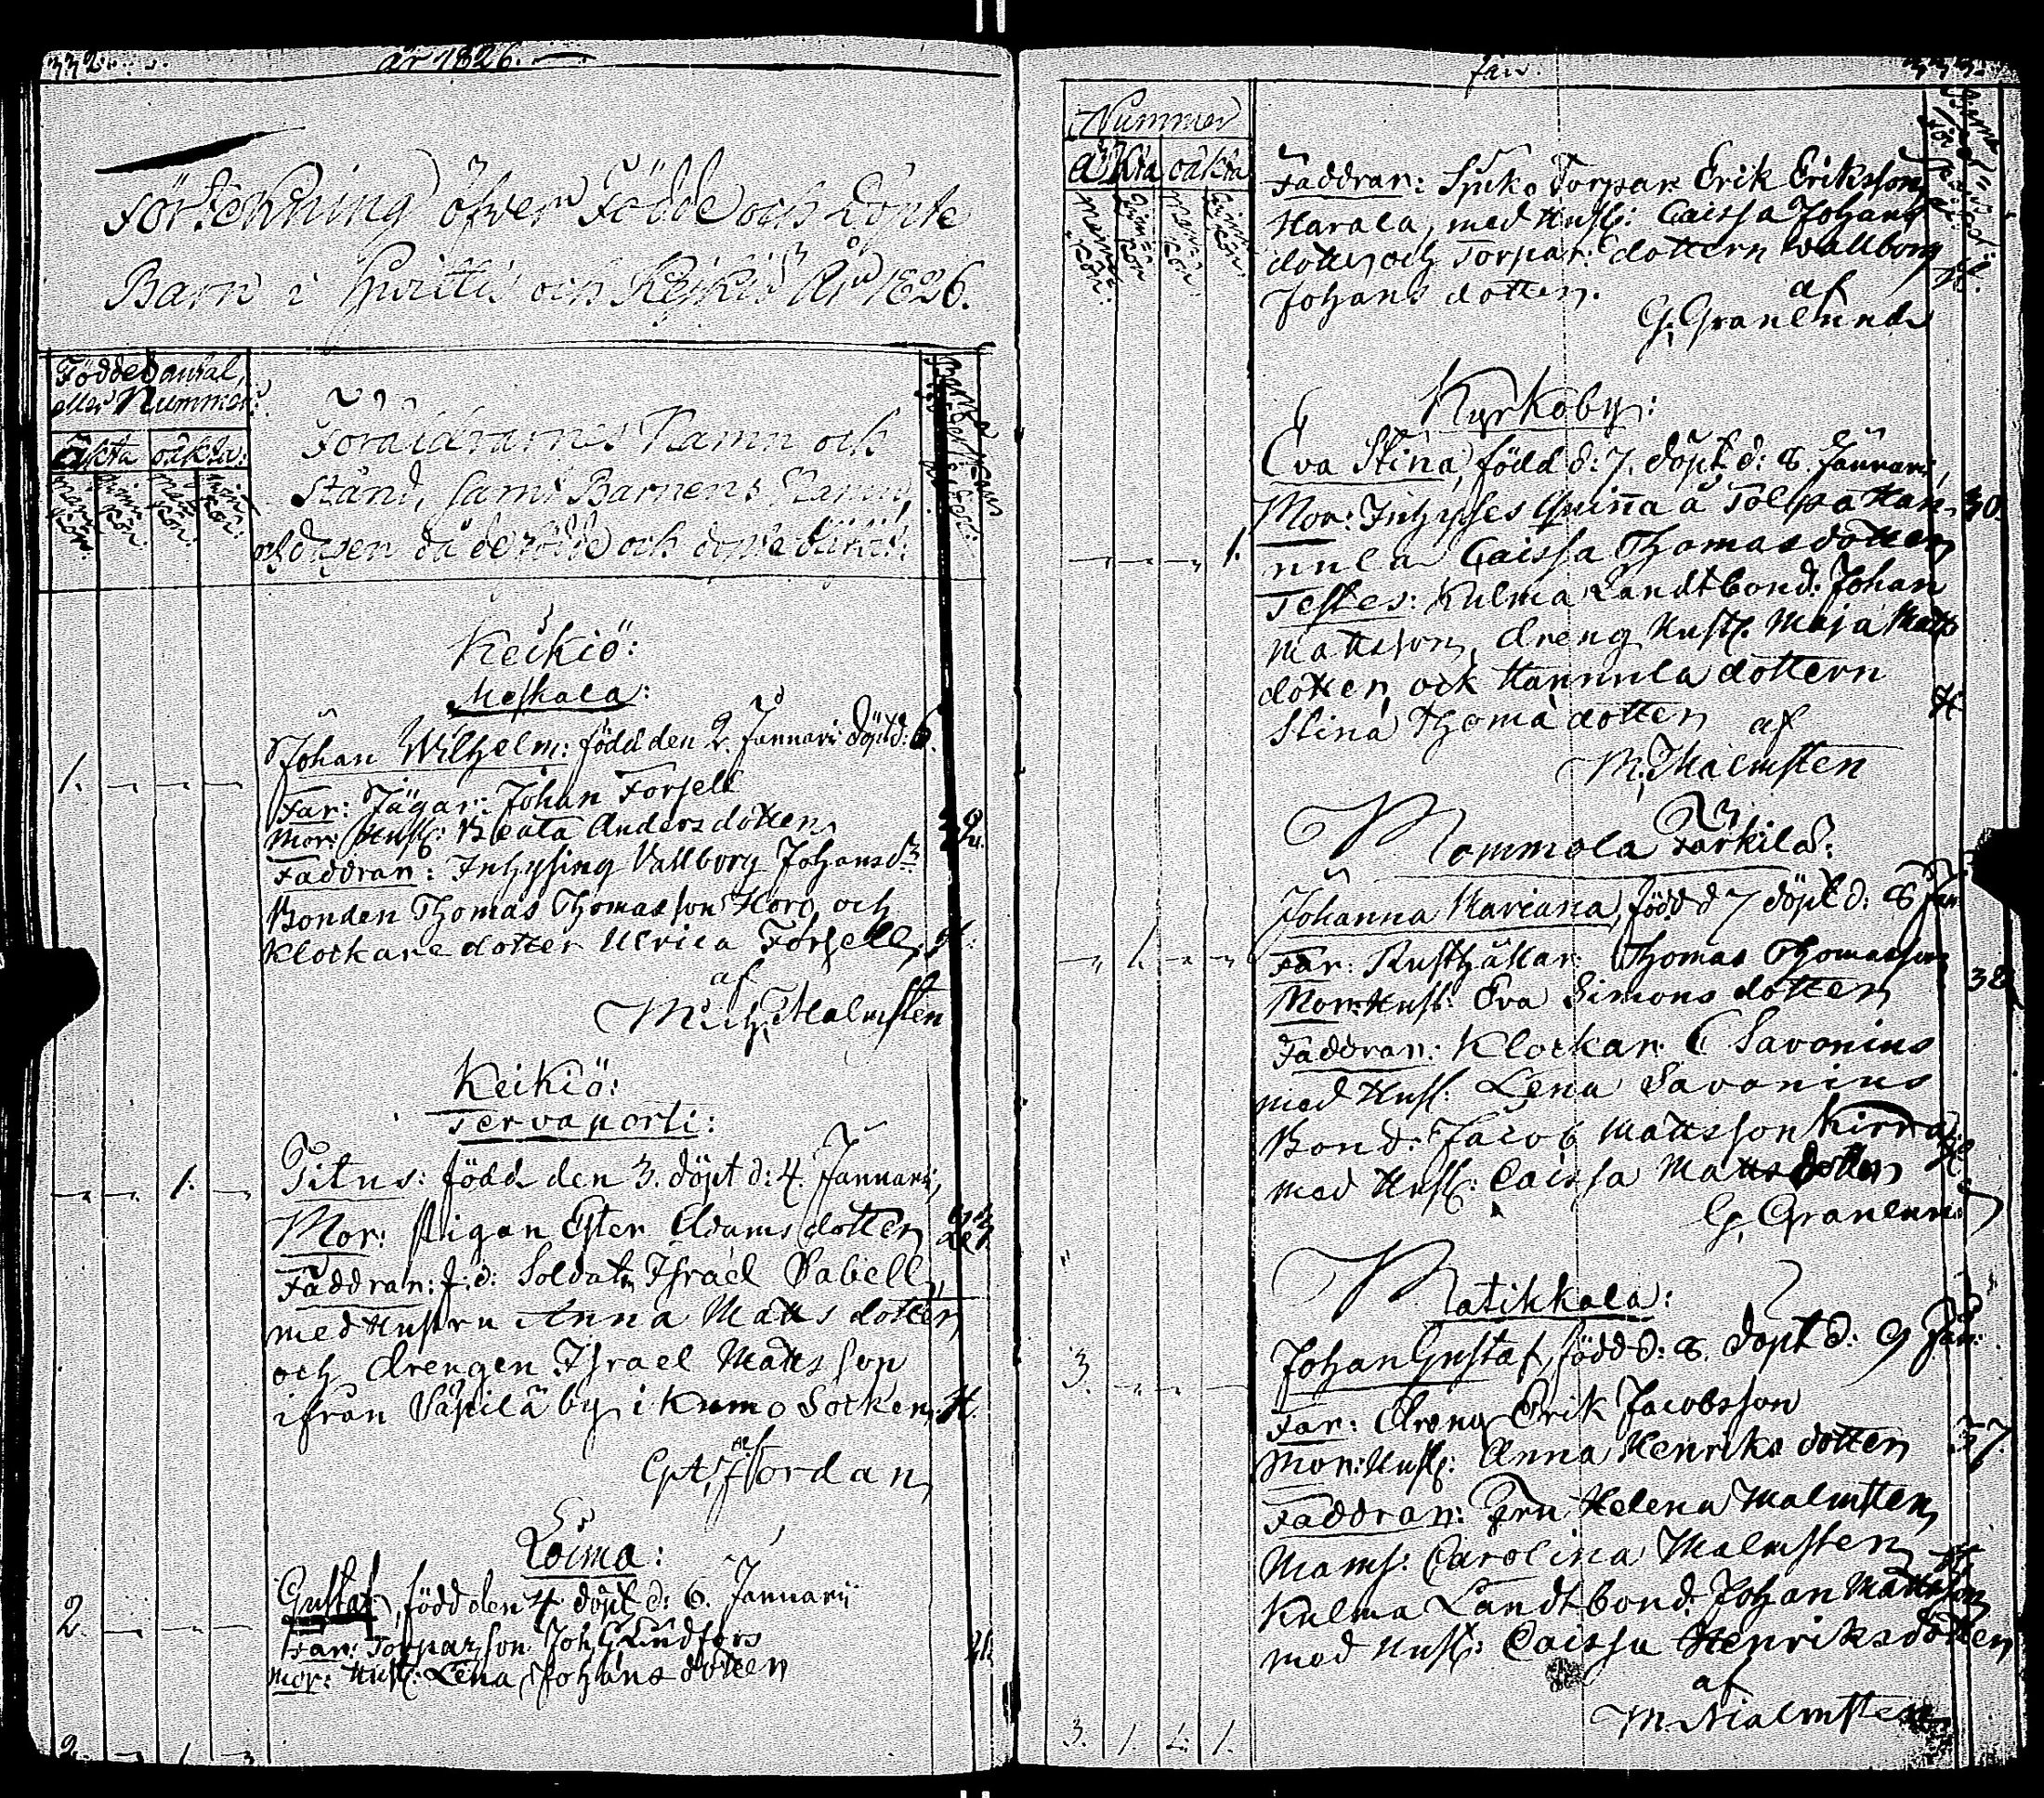 332.
år 1826.
Förtekning öfver Födde och Döpte
Barn i Hvittis och Keikiö År 1826.
Födde antal,
eller Nummer.
äkta oäkta:
Föräldrarnes Namn och
Stånd, samt Barnens Namn,
och dagen då de födde och döpte blifvit.
Keikiö:
Meskala:
Johan Wilhelm: född den 2. Januari döpt d: 6.
1.
Far: Jägar: Johan Forsell
Mor: Hust: Beata Andersdotter
Faddrar: Inhysing Vallborg Johansd:r
Bonden Thomas Thomasson Horo och
Klockare dotter Ulrica Forsell.
af
Mich. Malmsten
Keikiö:
Tervaporti:
Titus: född den 3. döpt d: 4. Januarii,
1.
Mor: Pigan Ester Adamsdotter
Faddrar: f: d: Soldaten Israel Sabell
med Hustru Anna Matts dotter
och drengen Israel Mattsson
ifrån Säpilä by i Kumo Socken. H.
af
Jordan
Loima:
Gustaf, född den 4 döpt d: 6. Januarii
2.
Far: Torparson Joh. Lindfors
Mor: Hust: Lena Johans dotter
2. 1.
Jan:
333.
Nummer
äkta oäkta
Faddrar: Sjuko Torpar: Erik Eriksson
Harala, med Hust: Caissa Johans
dotter och Torpar: dottern Wallborg
Johans dotter.
af
G. Granlund
Kyrkoby:
Eva Stina, född d: 7. döpt d: 8. Januari,
Mor: Inhyses Quinna å Tolpa Han- 30.
1.
nula Caissa Thomasdotter
Testes: Kulma Landtbond: Johan
Mattsson, dreng Hust: Maja Matts
dotter och Hannula dottern
Stina Thomä dotter
H
af
M. Malmsten
Mommola Tarkila:
Johanna Mariana, född d 7 döpt d: 8 Jan
1.
Far: Rusthållar: Thomas Thomasson
38
Mor: Hust: Eva Simons dotter
Faddrar: Klockar: C Savonius
med Hust: Lena Savonius
Bond: Jacob Mattsson Kirra
med Hust: Caissa Mattsdotter
G. Granlund
Matikkala:
Johan Gustaf, född d: 8. döpt d: 9 Jan:
3.
Far: Dreng Erik Jacobsson
Mor: Hust: Anna Henriks dotter
37.
Faddrar: Fru Helena Malmsten,
Mams: Carolina Malmsten
Kulma Landtbond: Johan Mattsson
med Hust: Caissa Henriksdotter
af
M. Malmsten
3. 1. 1. 1.